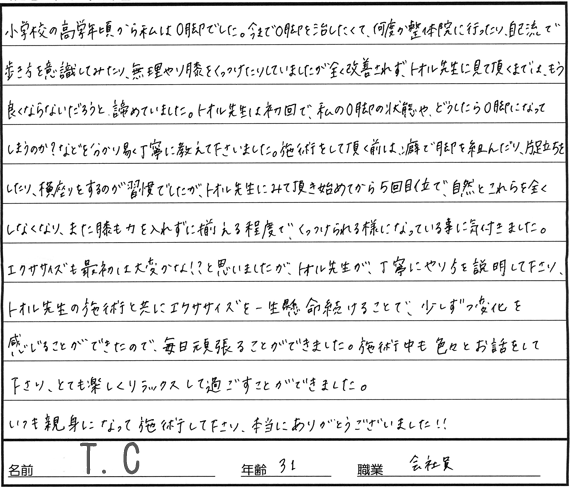 小学校の高学年頃から私はO脚でした。今までO脚を治したくて、何度か整体院に行ったり、自己流で
歩き方を意識してみたり、無理やり膝をくっつけたりしていましたが全く改善されず、トオル先生に見て頂くまでは、もう
良くならないだろうと諦めていました。トオル先生は初回で、私のO脚の状態や、どうしたらO脚になって
しまうのか?などを分かり易く丁寧に教えて下さいました。施術をして頂く前は、癖で脚を組んだり、片足立ちを
したり、横座りをするのが習慣でしたが、トオル先生にみて頂き始めてから5回目位で、自然とこれらを全く
しなくなり、また膝も力を入れずに揃える程度で、くっつけられる様になっている事に気付きました。
エクササイズも最初は大変かな!?と思いましたが、トオル先生が、丁寧にやり方を説明して下さり、
トオル先生の施術と共にエクササイズを一生懸命続けることで、少しずつ変化を
感じることができたので、毎日頑張ることができました。施術中も色々とお話をして
下さり、とても楽しくリラックスして過ごすことができました。
いつも親身になって施術して下さり、本当にありがとうございました!!
名前 T.C 年齢 31 職業 会社員